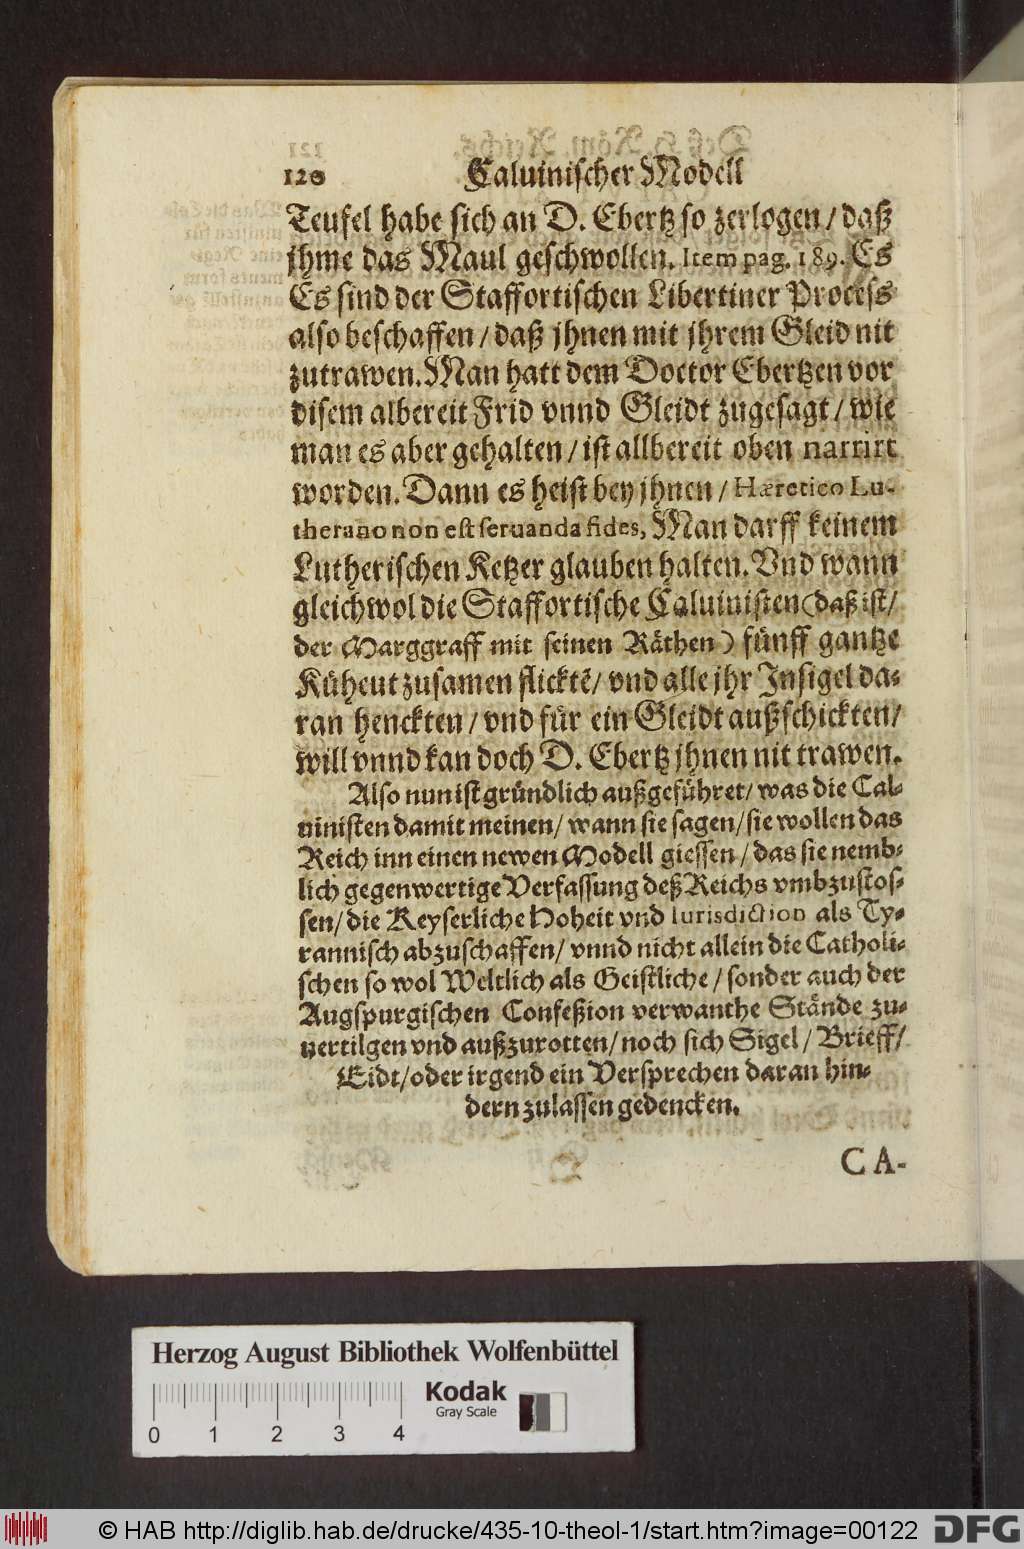 120 Caluinischer Modell
Teufel habe sich an D. Ebertz so zerlogen/ daß
jhme das Maul geschwollen. Item pag. 189. Es
Es sind der Staffortischen Libertiner Process
also beschaffen/ daß jhnen mit jhrem Gleid nit
zutrawen. Man hatt dem Doctor Ebertzen vor
disem albereit Frid vnnd Gleidt zugesagt/ wie
man es aber gehalten/ ist allbereit oben narrirt
worden. Dann es heist bey jhnen/ Hæretico Lu-
therano non est seruanda fides, Man darff keinem
Lutherischen Ketzer glauben halten. Vnd wann
gleichwol die Staffortische Caluinisten (daß ist/
der Marggraff mit seinen Räthen) fünff gantze
Küheut zusamen flicktẽ/ vnd alle jhr Insigel da-
ran henckten/ vnd für ein Gleidt außschickten/
will vnnd kan doch D. Ebertz jhnen nit trawen.
Also nun ist gründlich außgeführet/ was die Cal-
uinisten damit meinen/ wann sie sagen/ sie wollen das
Reich inn einen newen Modell giessen/ das sie nemb-
lich gegenwertige Verfassung deß Reichs vmbzustos-
sen/ die Keyserliche Hoheit vnd Iurisdiction als Ty-
rannisch abzuschaffen/ vnnd nicht allein die Catholi-
schen so wol Weltlich als Geistliche/ sonder auch der
Augspurgischen Confeßion verwanthe Stände zu-
uertilgen vnd außzurotten/ noch sich Sigel/ Brieff/
Eidt/ oder irgend ein Versprechen daran hin-
dern zulassen gedencken.
CA-
Herzog August Bibliothek Wolfenbüttel
0 1 2 3 4
Kodak
Gray Scale
© HAB http://diglib.hab.de/drucke/435-10-theol-1/start.htm?image=00122
DFG